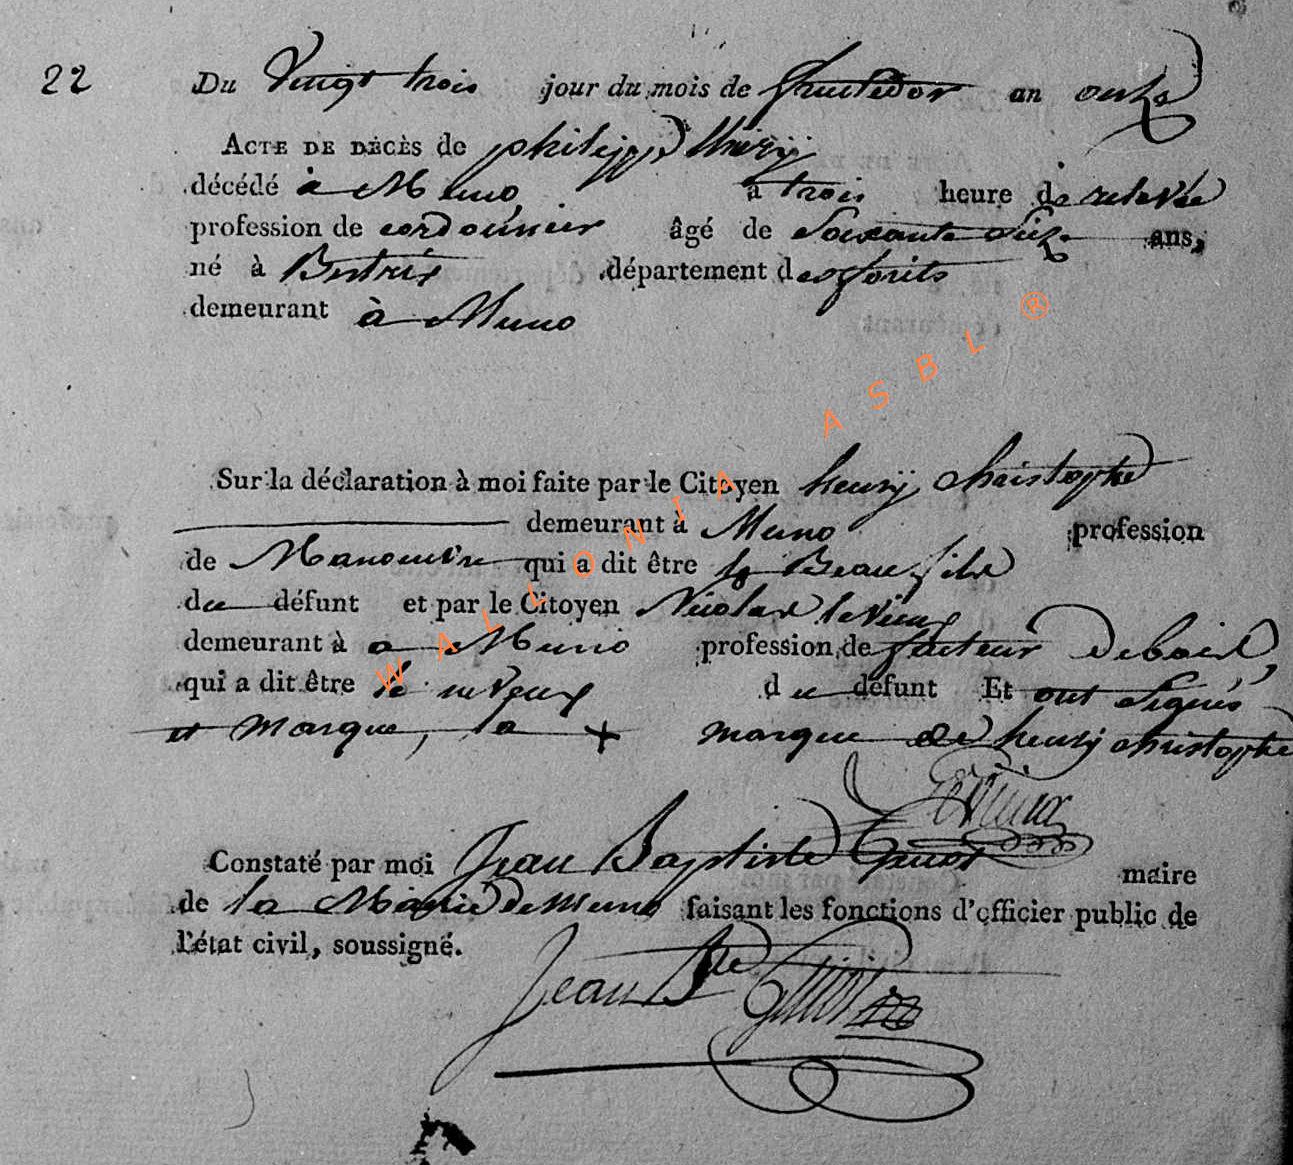 22
Du Vingt trois jour du mois de fructidor an onze
ACTE DE DÉCÈS de philippe thiry
décédé à Muno, à trois heure de relevée
profession de cordonnier âgé de Soixante Seize ans,
né à Bertrix département des forêts
demeurant à Muno
Sur la déclaration à moi faite par le Citoyen henrÿ christophe
demeurant à Muno profession
de Manouvre qui a dit être le Beau fils
du défunt et par le Citoyen Nicolas levieux
demeurant à a Muno profession de facteur De bois,
qui a dit être le neveux du défunt Et ont Signés
et marque, la + marque de henrÿ christophe
levieux
Constaté par moi Jean Baptiste Guiot maire
de la Mairie de Muno faisant les fonctions d'officier public de
l'état civil, soussigné.
Jean Bte Guiot
WALLONIA ASBL ®